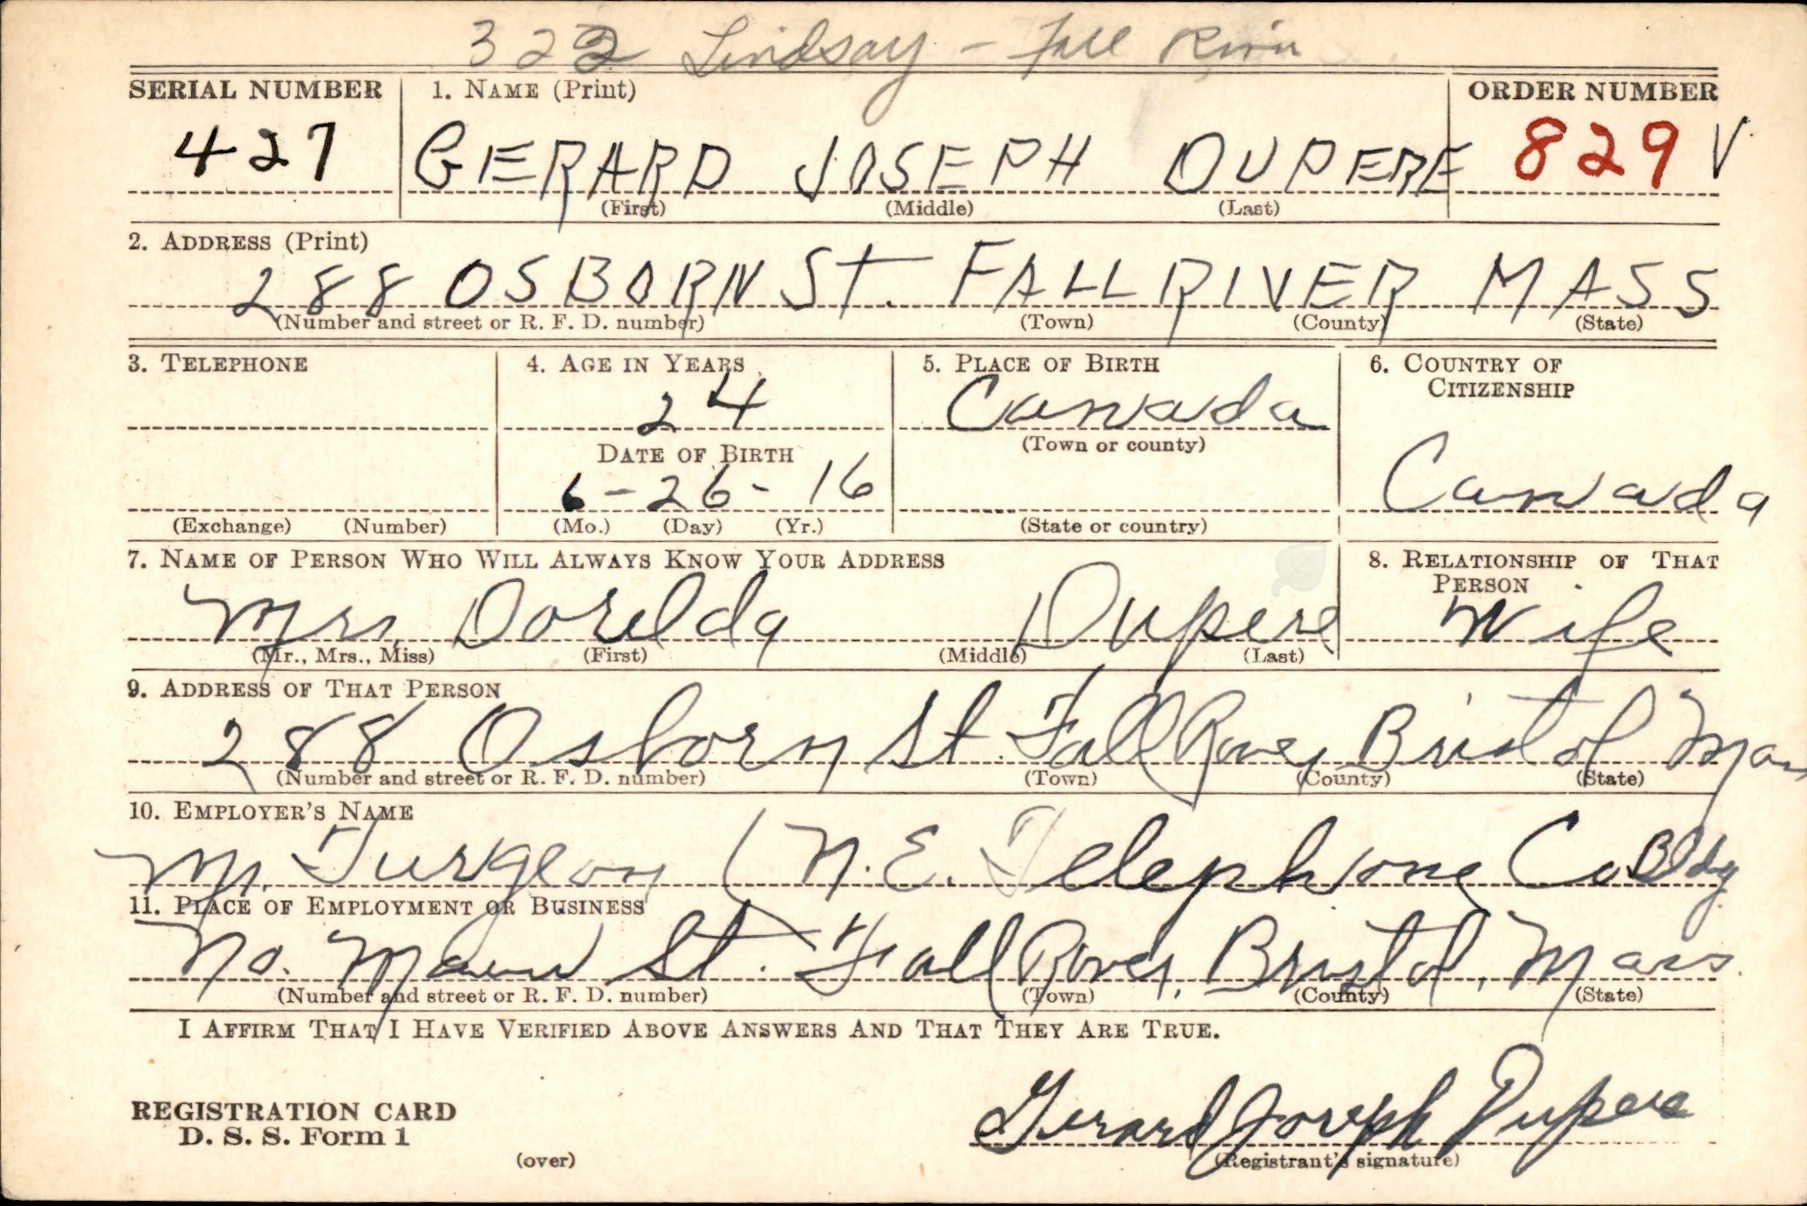 322 Lindsay - Fall River
SERIAL NUMBER 1. NAME (Print) ORDER NUMBER
427 GERARD JOSEPH DUPERE 829 V
(First) (Middle) (Last)
2. ADDRESS (Print)
288 OSBORN St. FALL RIVER MASS
(Number and street or R. F. D. number) (Town) (County) (State)
3. TELEPHONE 4. AGE IN YEARS 5. PLACE OF BIRTH 6. COUNTRY OF CITIZENSHIP
24 Canada
DATE OF BIRTH (Town or county)
6-26-16 Canada
(Exchange) (Number) (Mo.) (Day) (Yr.) (State or country)
7. NAME OF PERSON WHO WILL ALWAYS KNOW YOUR ADDRESS 8. RELATIONSHIP OF THAT PERSON
Mrs. Dorelda Dupere Wife
(Mr., Mrs., Miss) (First) (Middle) (Last)
9. ADDRESS OF THAT PERSON
288 Osborn St. Fall River Bristol Mass
(Number and street or R. F. D. number) (Town) (County) (State)
10. EMPLOYER'S NAME
Mr. Turgeon (N.E. Telephone Co Bldg
11. PLACE OF EMPLOYMENT OR BUSINESS
No. Main St. Fall River, Bristol, Mass.
(Number and street or R. F. D. number) (Town) (County) (State)
I AFFIRM THAT I HAVE VERIFIED ABOVE ANSWERS AND THAT THEY ARE TRUE.
REGISTRATION CARD
D. S. S. Form 1
Gerard Joseph Dupere
(over) (Registrant's signature)